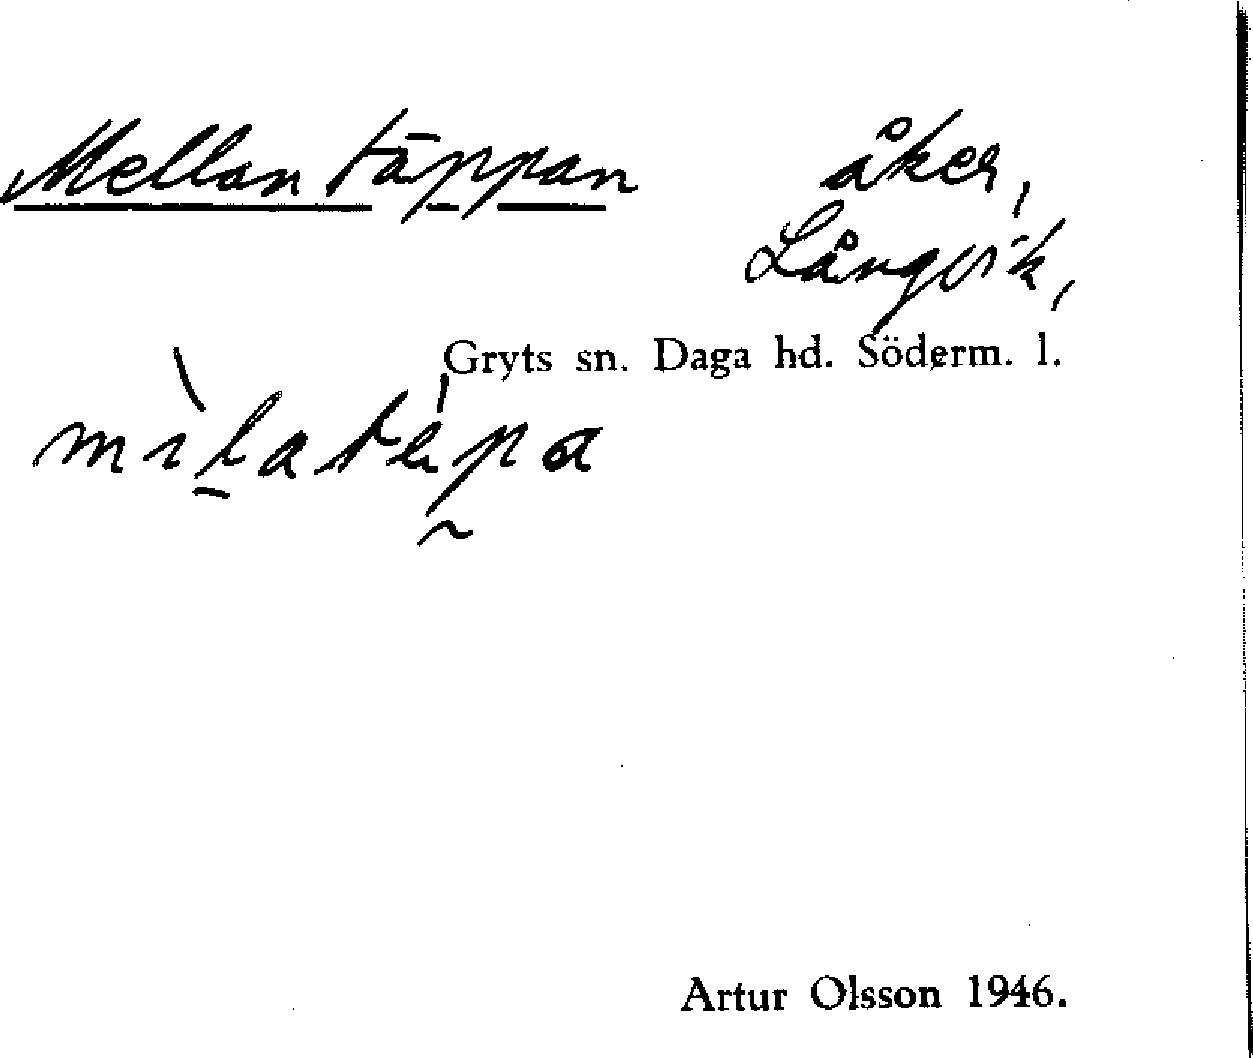 Mellantäppan åker,
Långvik,
Gryts sn. Daga hd. Söderm. l.
Artur Olsson 1946.